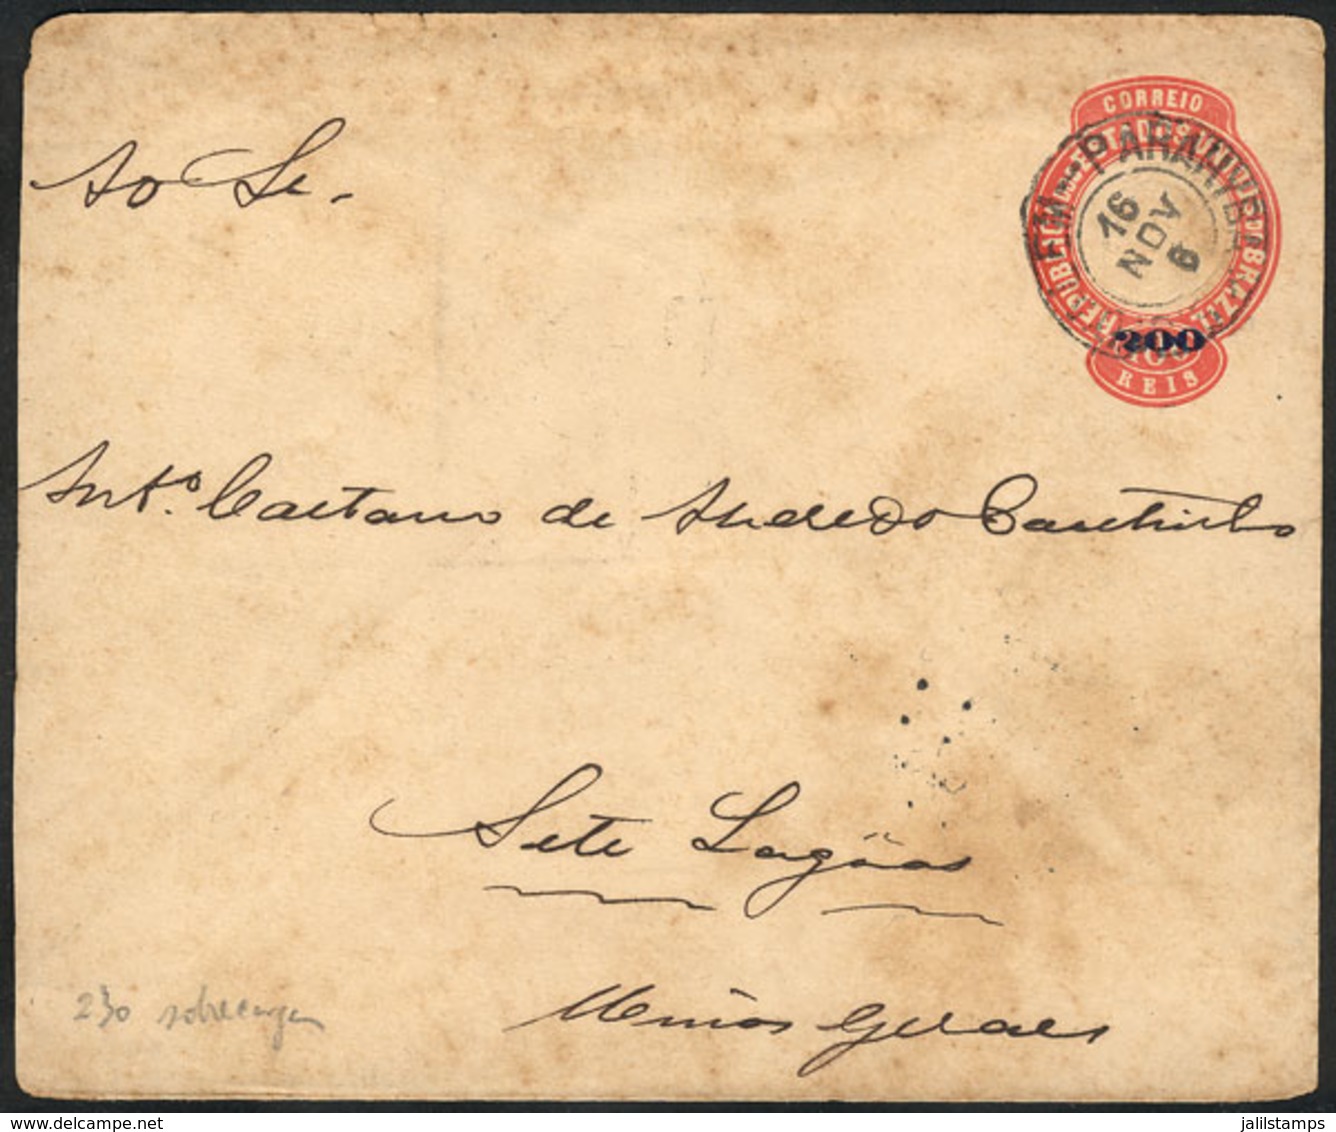 CORREIO
REPUBLICA DOS ESTADOS UNIDOS DO BRAZIL
PARA
16
NOV
6
200
REIS
Ao Sr.
Antº. Caetano de Azeredo Coutinho
Sete Lagôas
Minas Geraes
230 sobrecarga
delcampe.net
jalilstamps